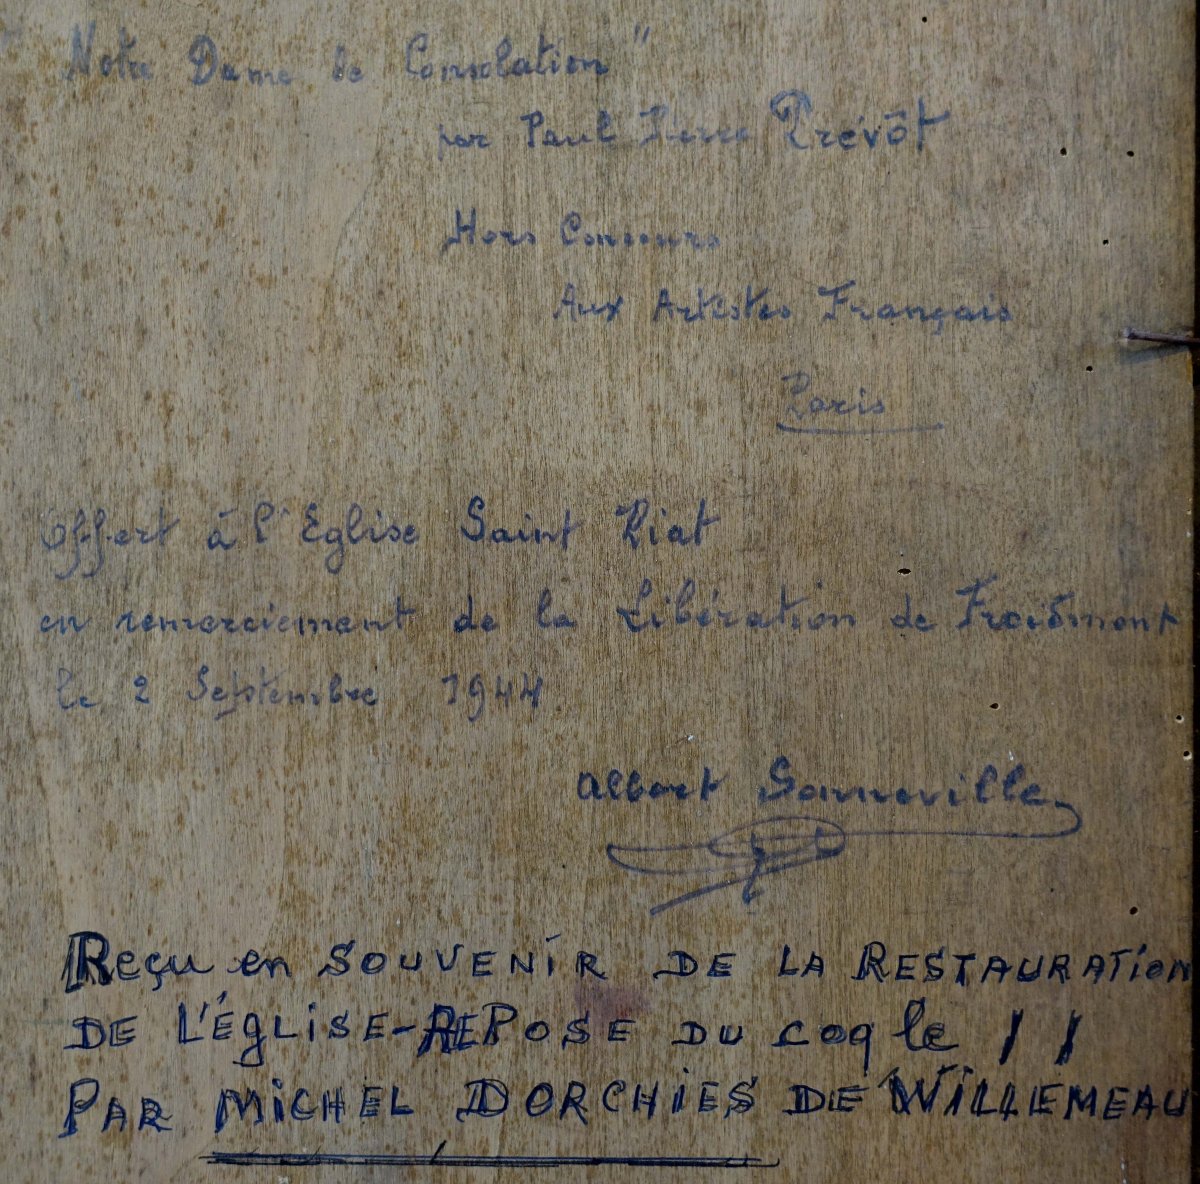 Notre Dame de Consolation "
par Paul Pierre Prévôt
Hors Concours
Aux Artistes Français
Paris
Offert à l'Eglise Saint Piat
en remerciement de la Libération de Froidmont
le 2 Septembre 1944
Albert Sanneville
Reçu en SOUVENIR DE LA RESTAURATION
DE L'ÉGLISE-REPOSE DU COQ le / /
PAR MICHEL DORCHIES DE WILLEMEAU